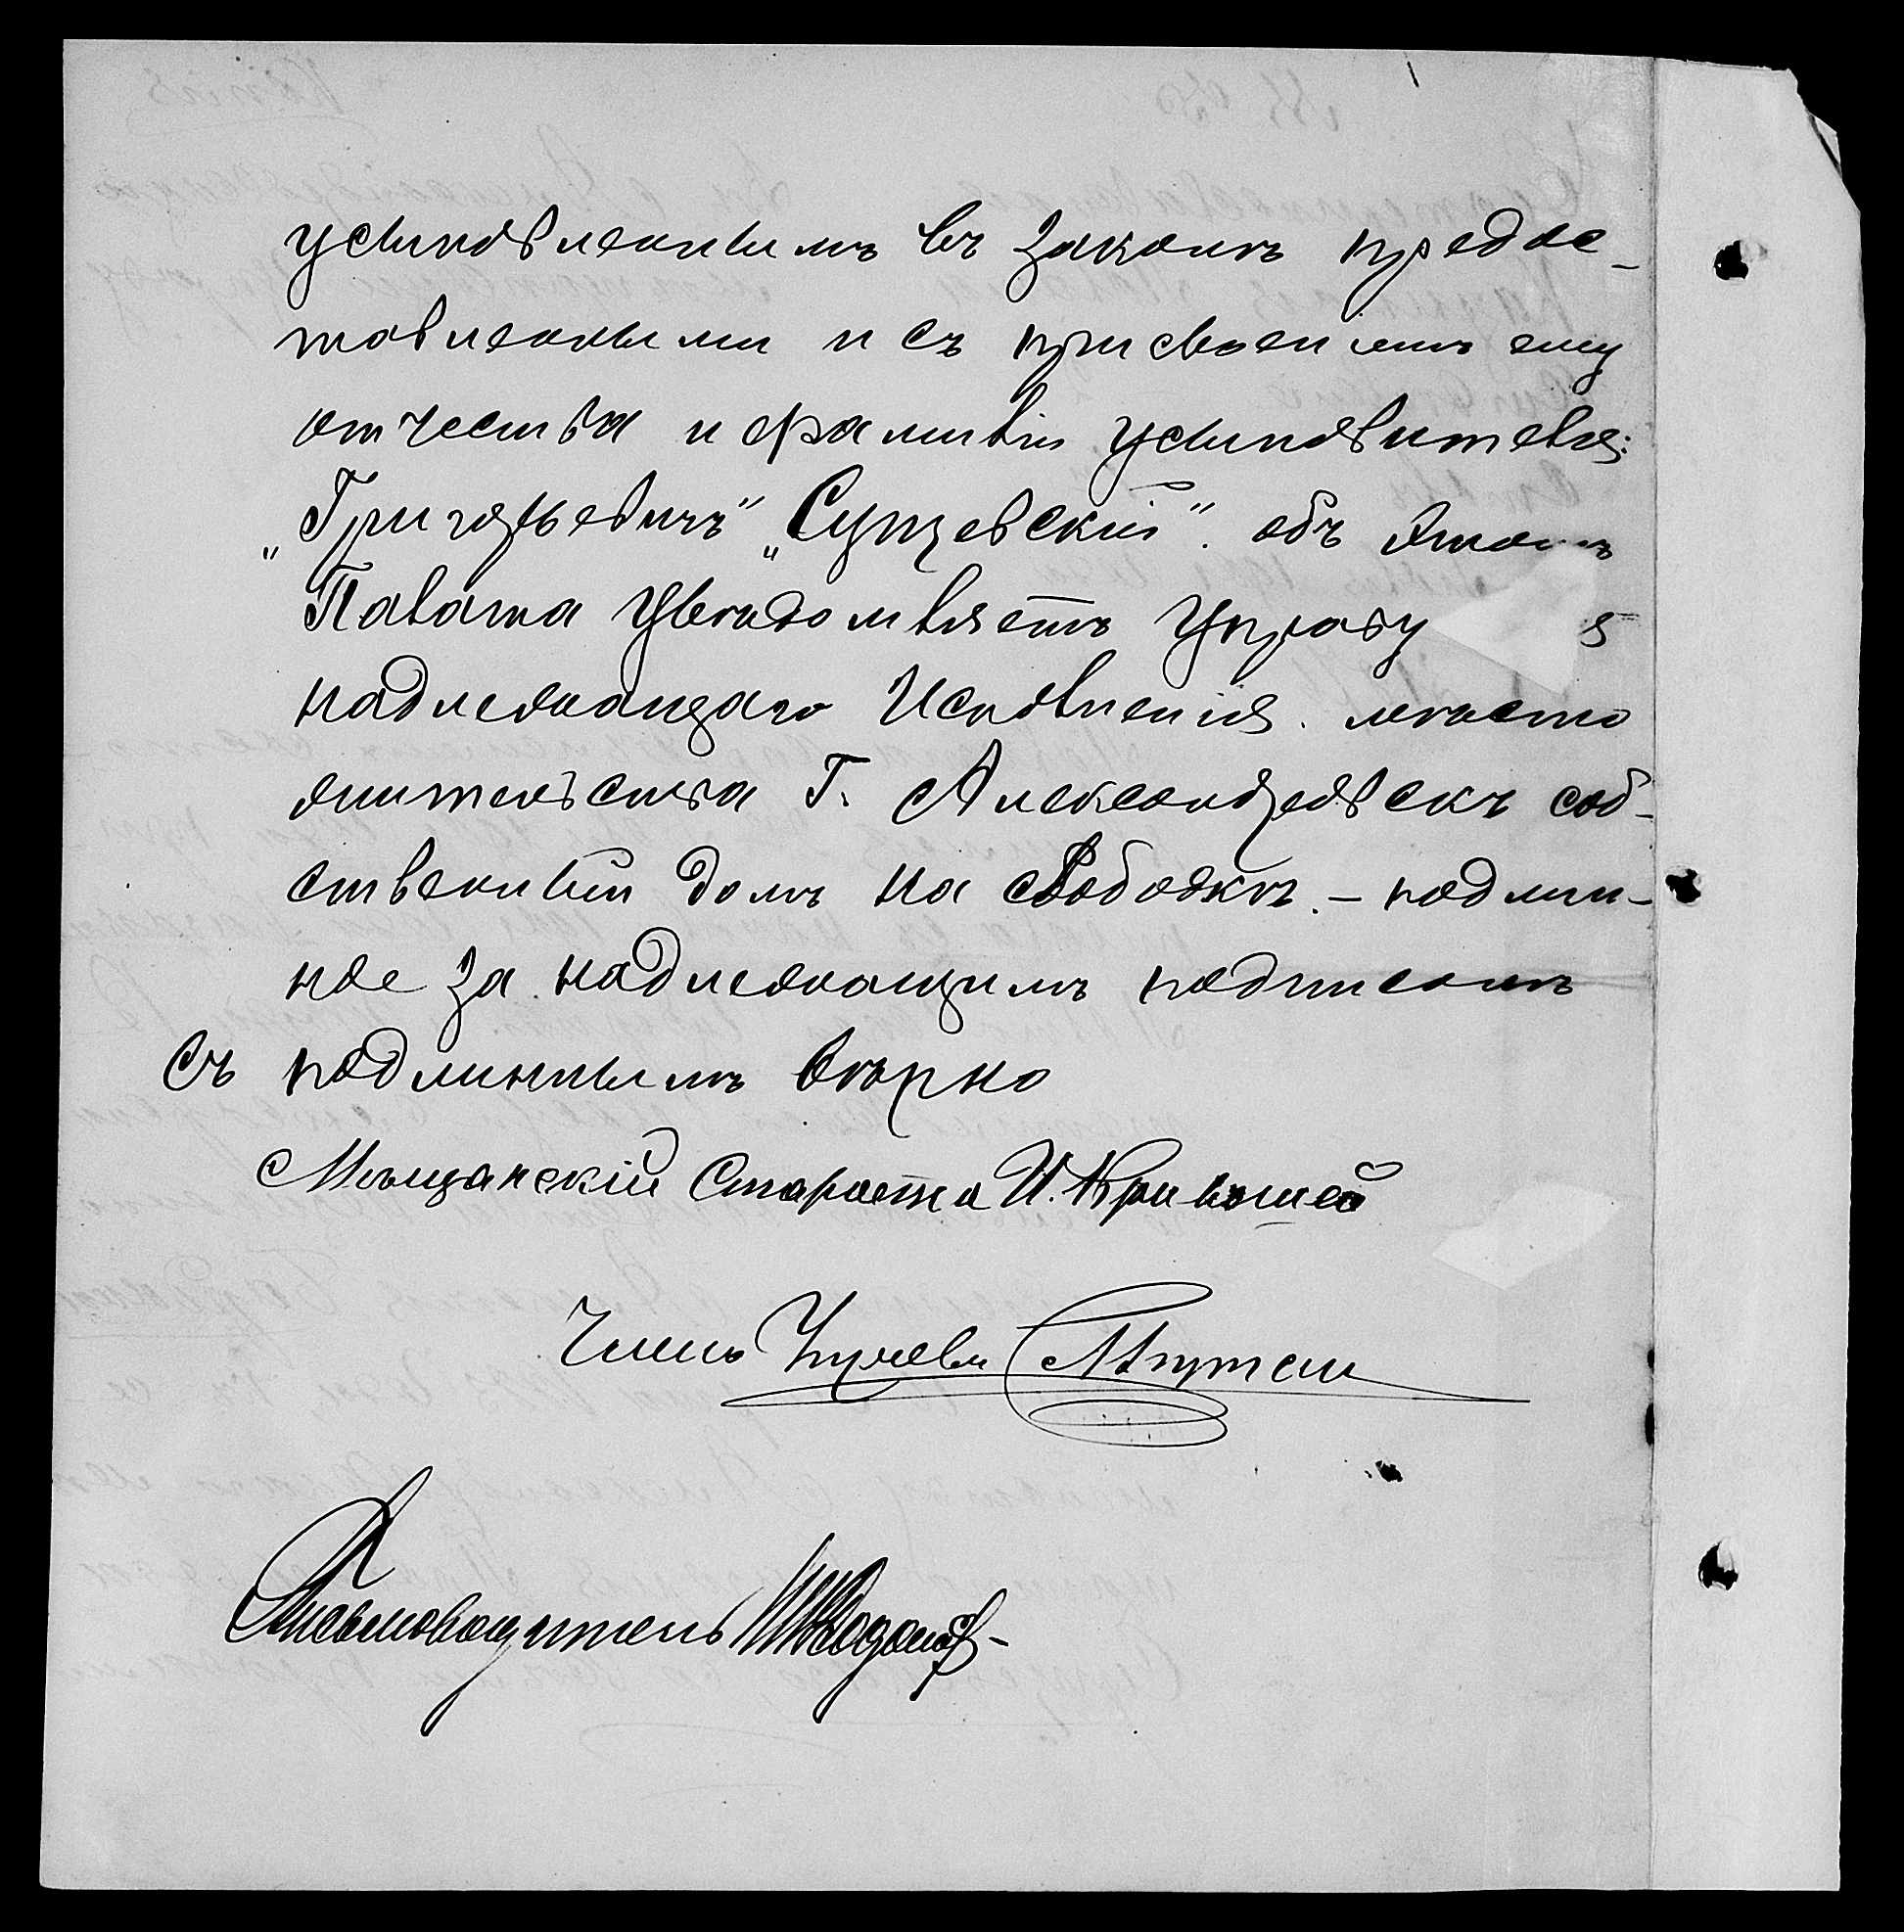 усыновленнымъ въ законѣ предос-
тавленными и съ присвоеніемъ ему
отчества и фамиліи усыновителя:
„Григорьевичъ" „Сущевскій". объ этомъ
Палата Увѣдомляетъ Управу
надлежащаго Исполненія. мѣсто
жительства Г. Александровскъ соб-
ственный домъ на слободкѣ. – подлин-
ное за надлежащимъ подписомъ
Съ подлиннымъ вѣрно
Мѣщанскій Староста И. Кривошей
Членъ Управы
Письмоводитель